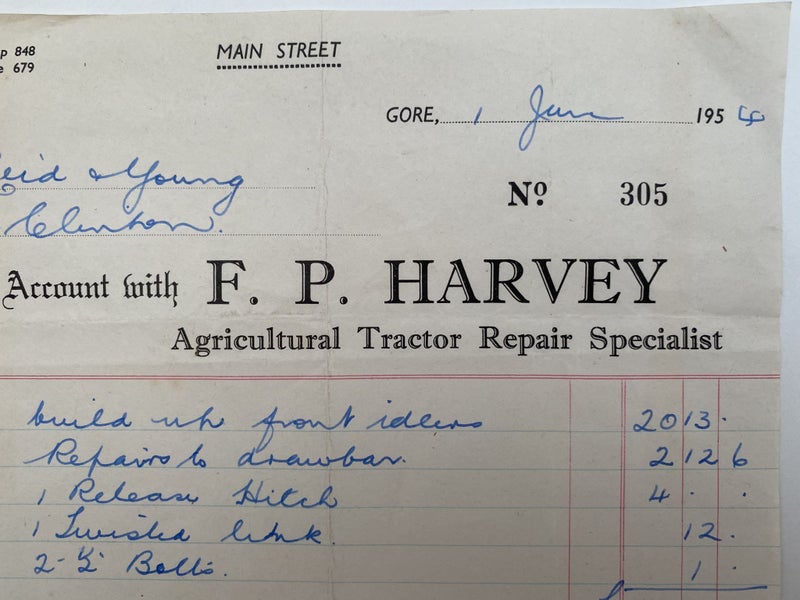 P 848
e 679
MAIN STREET
GORE, 1 Jun 1954
eid & Young
Clinton.
No 305
Account with F. P. HARVEY
Agricultural Tractor Repair Specialist
build up front idlers 20 13 .
Repairs to drawbar. 2 12 6
1 Release Hitch 4 . .
1 Twisted link 12 .
2 - ½" Bolts. 1 .